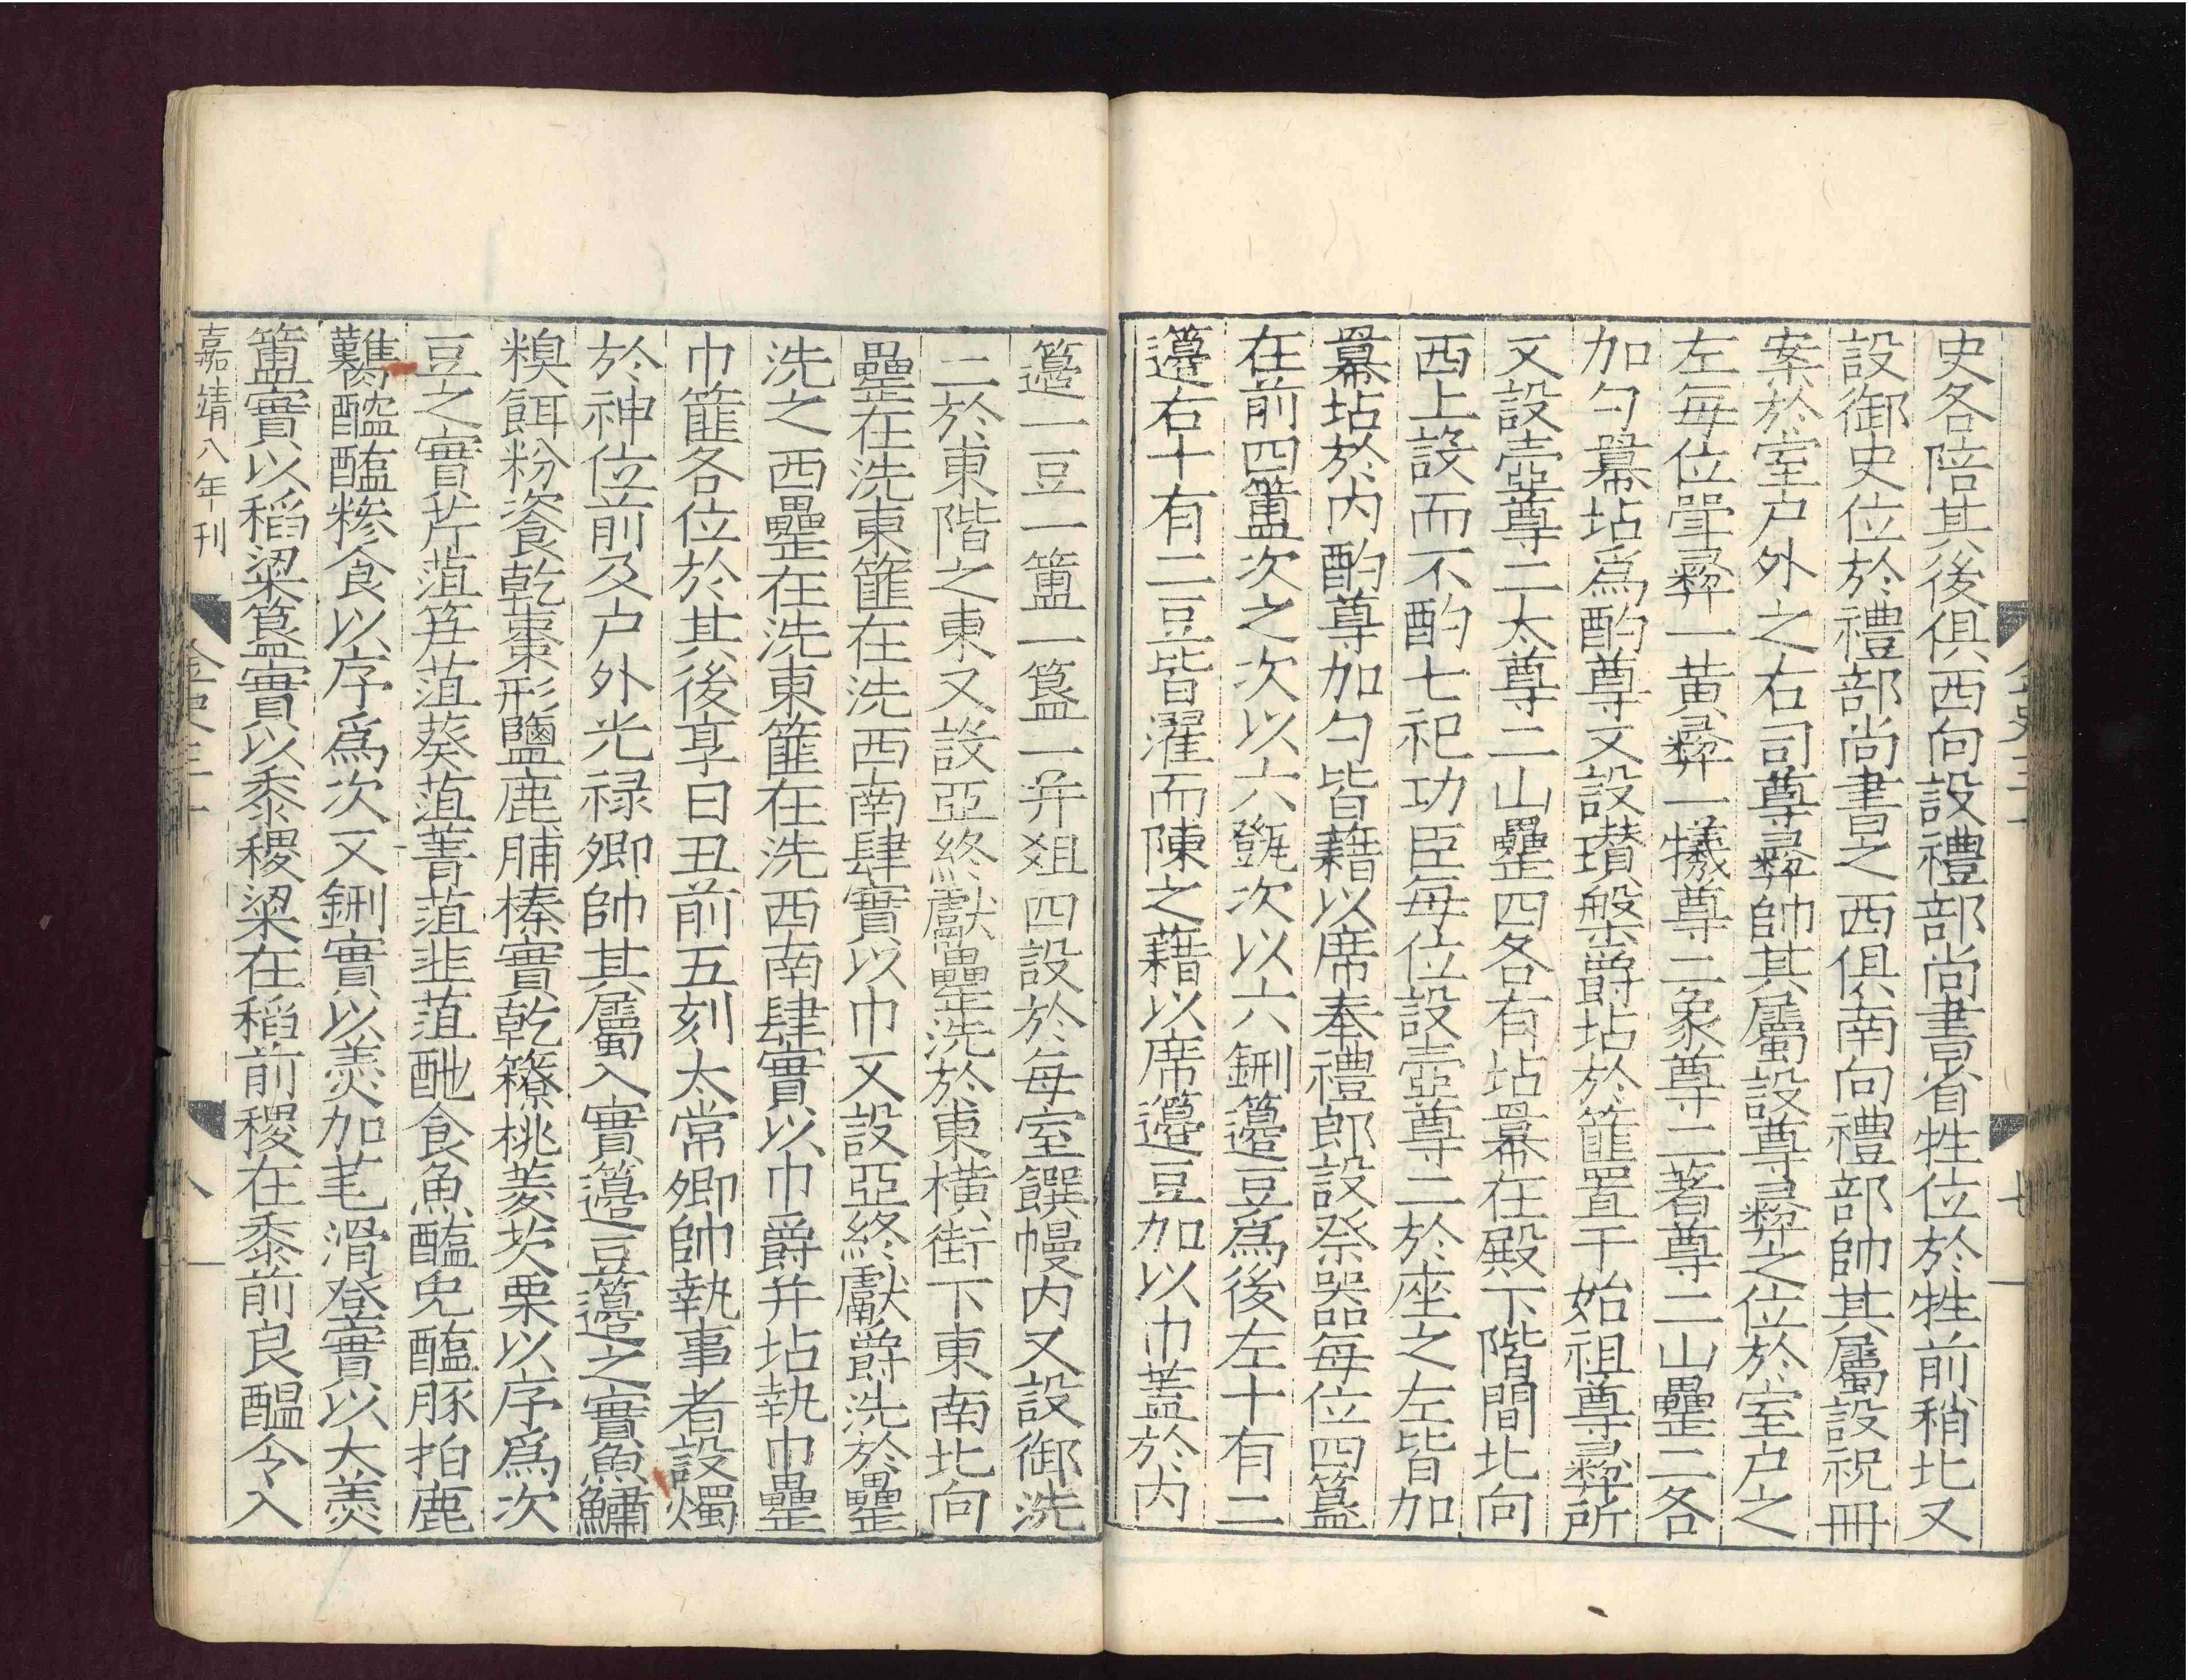 史各陪其後俱西向設禮部尚書省牲位於牲前稍北又
設御史位於禮部尚書之西俱南向禮部帥其屬設祝冊
案於室户外之右司尊彛帥其屬設尊彛之位於室户之
左每位斝彛一黄彛一犧尊二象尊二著尊二山罍二各
加勺羃坫爲酌尊又設瓚槃爵坫於篚置于始祖尊彛所
又設壺尊二太尊二山罍四各有坫羃在殿下階間北向
西上設而不酌七祀功臣每位設壺尊二於座之左皆加
羃坫於内酌尊加勺皆藉以席奉禮郎設祭器每位四簋
在前四簠次之次以六㽅次以六鉶籩豆爲後左十有二
籩右十有二豆皆濯而陳之藉以席籩豆加以巾蓋於内
籩一豆一簠一簋一并俎四設於每室饌幔内又設御洗
二於東階之東又設亞終獻罍洗於東横街下東南北向
罍在洗東篚在洗西南肆實以巾又設亞終獻爵洗於罍
洗之西罍在洗東篚在洗西南肆實以巾爵并坫執巾罍
巾篚各位於其後享日丑前五刻太常卿帥執事者設燭
於神位前及户外光禄卿帥其屬入實籩豆籩之實魚鱐
糗餌粉餈乾棗形鹽鹿脯榛實乾䕩桃菱芡栗以序爲次
豆之實芹菹笋菹葵菹菁菹韭菹酏食魚醢兎醢豚拍鹿
臡醓醢糝食以序爲次又鉶實以羮加芼滑登實以大羮
簠實以稻粱簋實以黍稷粱在稻前稷在黍前良醖令入
嘉靖八年刊
金史三十
八
七